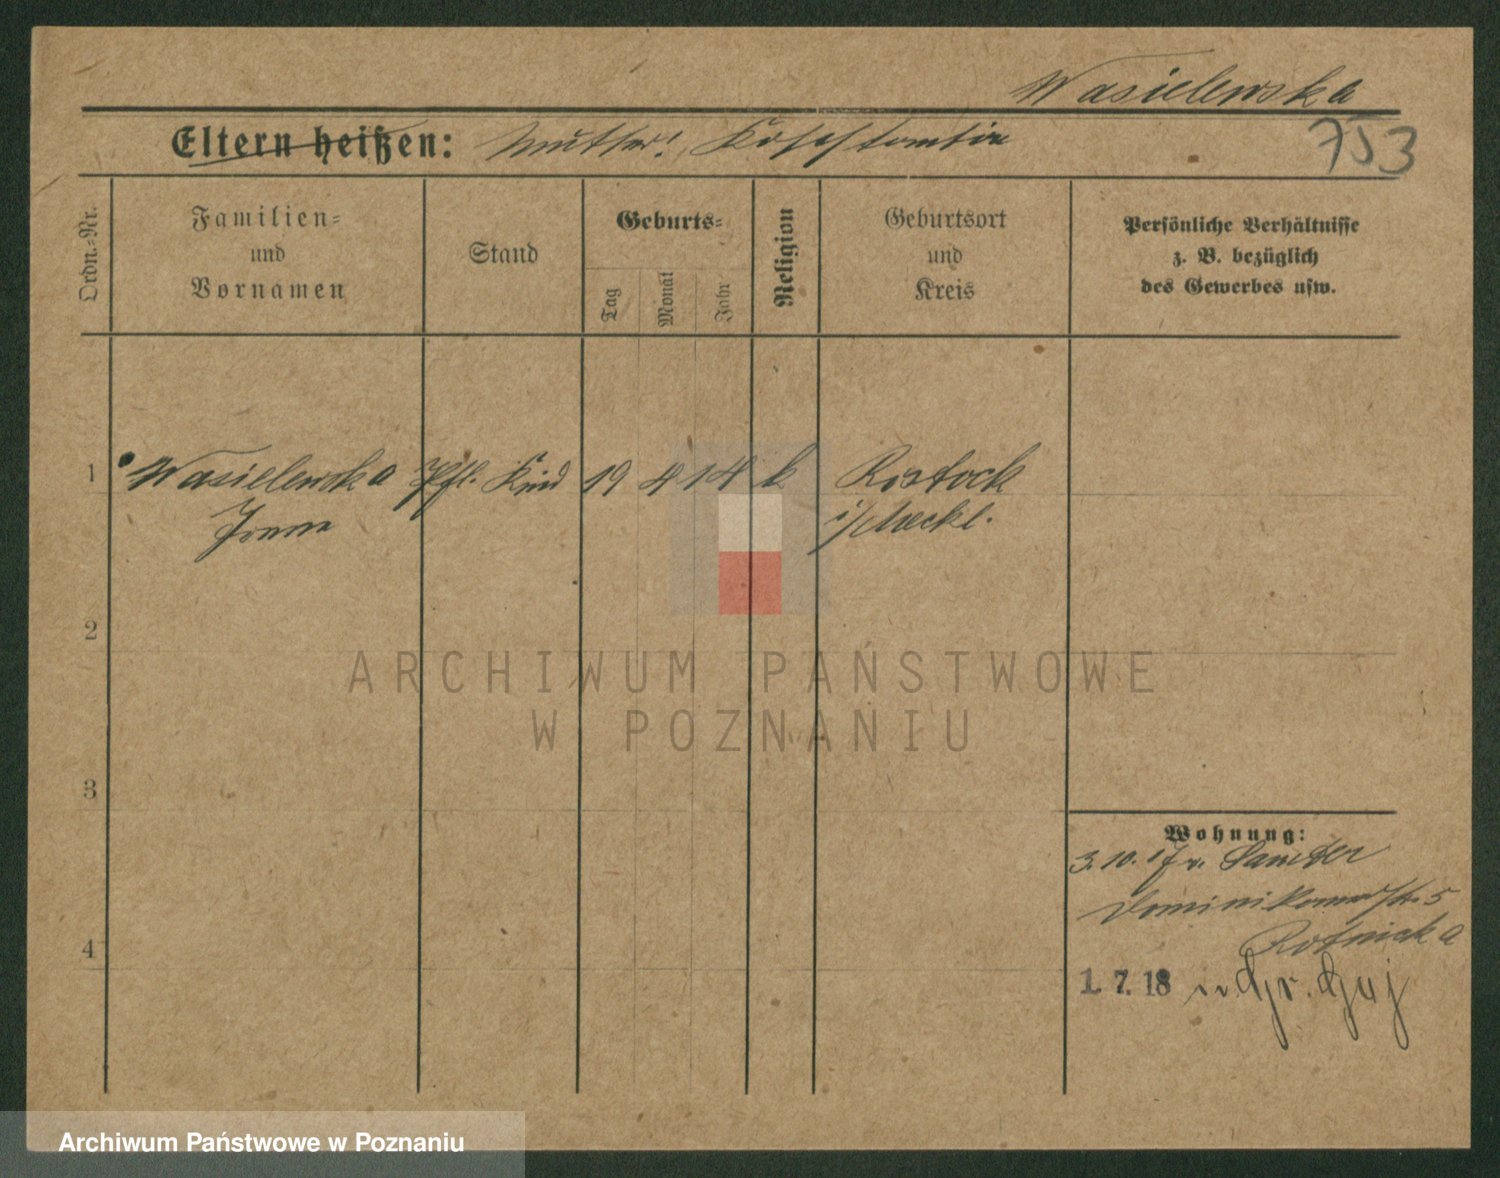 Wasielewska
Eltern heißen: Mutter!
753
Ordn.-Nr.
Familien-
und
Vornamen
Stand
Geburts-
Tag
Monat
Jahr
Religion
Geburtsort
und
Kreis
Persönliche Verhältnisse
z. B. bezüglich
des Gewerbes usw.
1 Wasielewska Pfl. Kind 19 4 14 k. Rostock
i/Meckl.
2
ARCHIWUM PAŃSTWOWE
W POZNANIU
3
Wohnung:
3.10.17 v. Samter
Dominikanerstr. 5
4
1. 7. 18 Gr. Gay
Archiwum Państwowe w Poznaniu